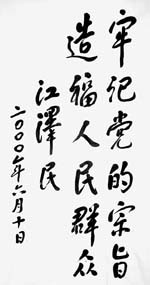 牢记党的宗旨
造福人民群众
江泽民
二〇〇〇年六月十日